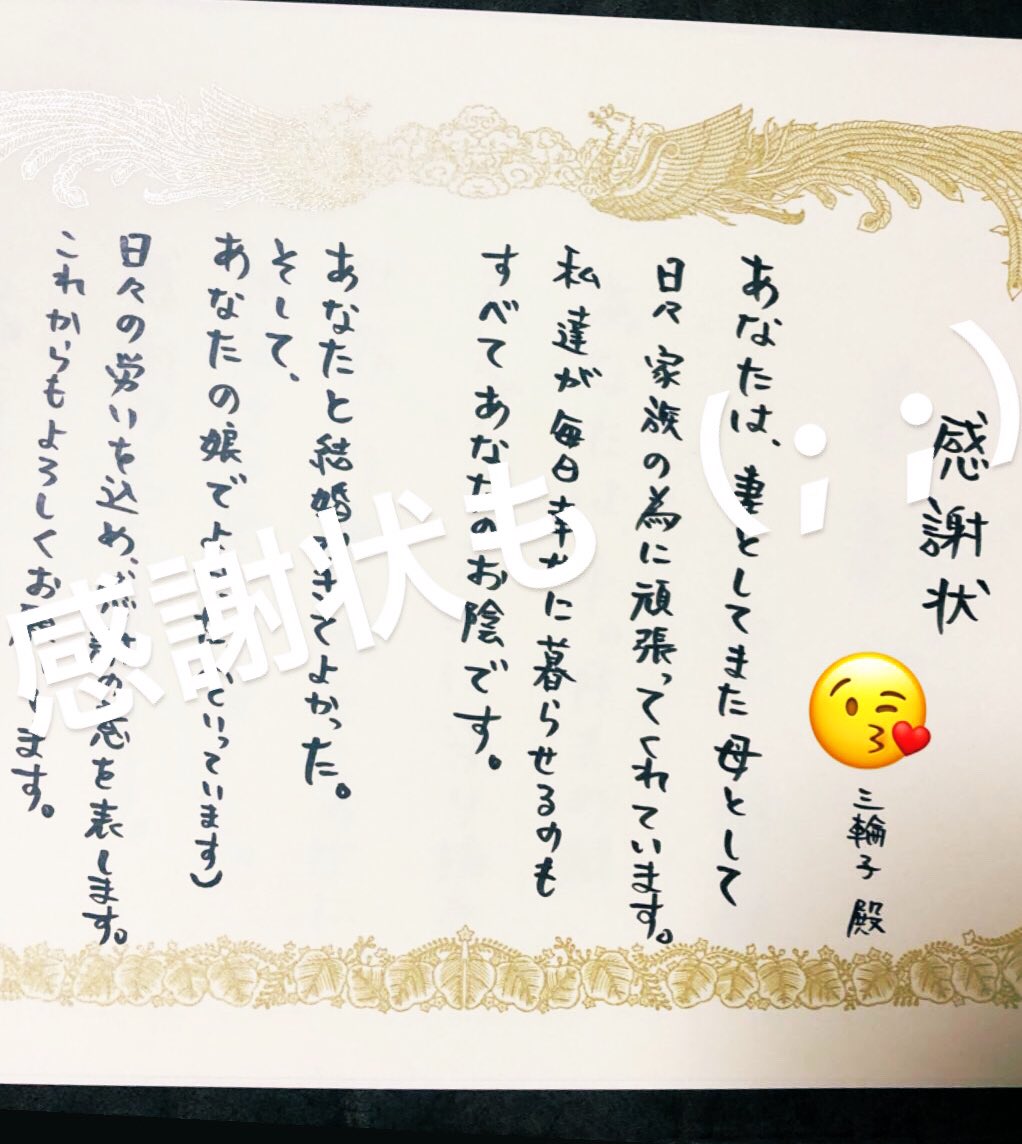 感謝状
三輪子 殿
あなたは、妻としてまた母として
日々家族の為に頑張ってくれています。
私達が毎日幸せに暮らせるのも
すべてあなたのお陰です。
あなたと結婚できてよかった。
そして、
あなたの娘でよかった いっています)
日々の労いを込め、 の意を表します。
これからもよろしくお願いします。
感謝状も (; ;)